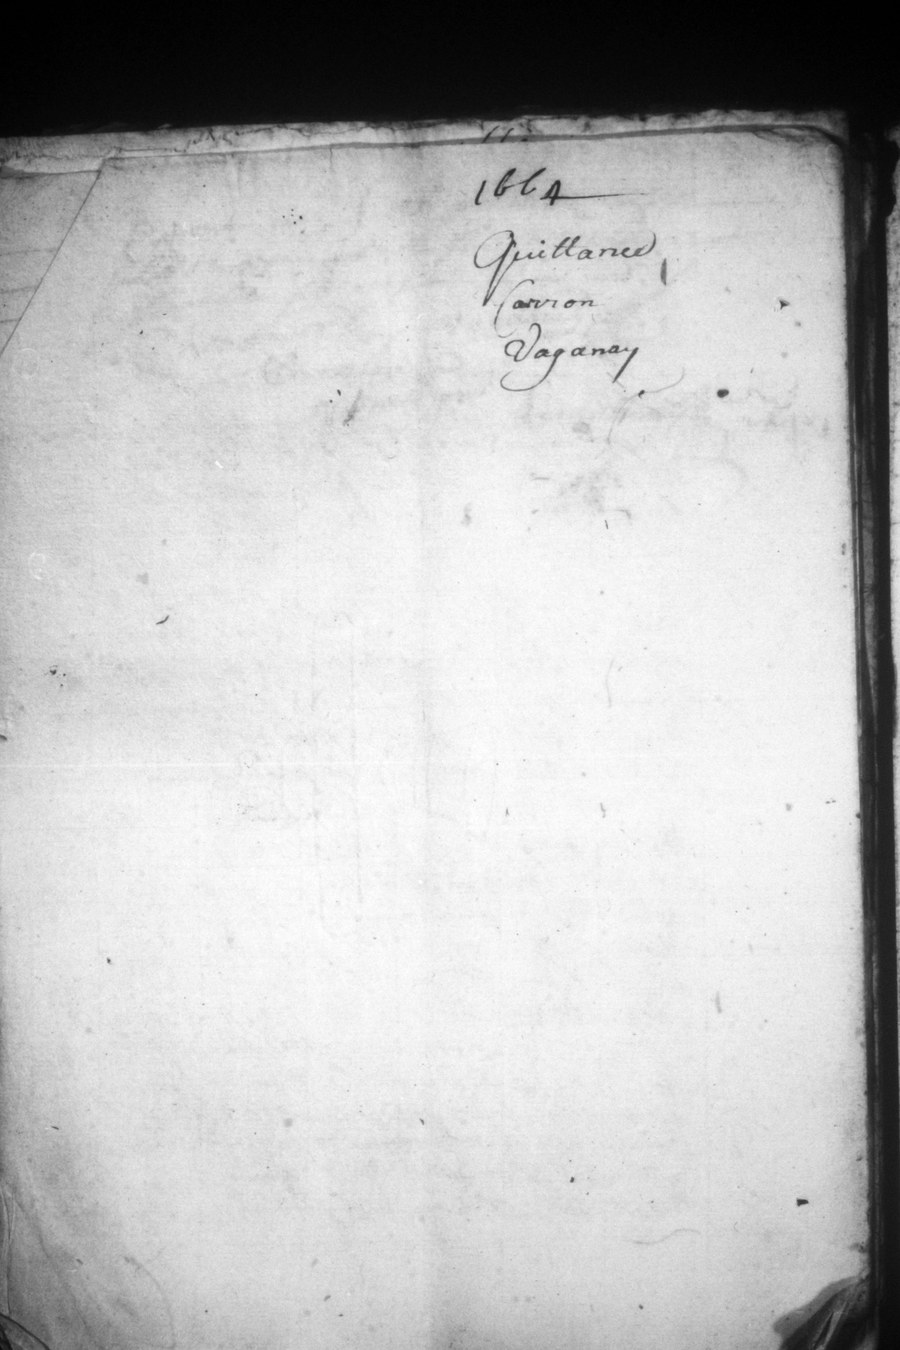 1664
Quittance
Carron
Vaganay